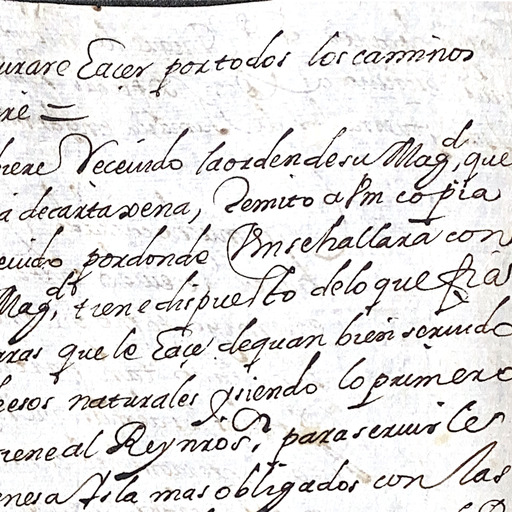 urare Eaçer por todos los caminos
re =
iere Receuido la orden de su Mag.d, que
a de cartaxena, Remito a Vm copia
euido por donde Vm se hallara con
Mag.d, tiene dispuesto de lo que
rras que le Eaçe de quan bien seruido
esos naturales y siendo lo primero
tiene al Rey nro s.r, para seruirles
enes a Isla mas obligados con las